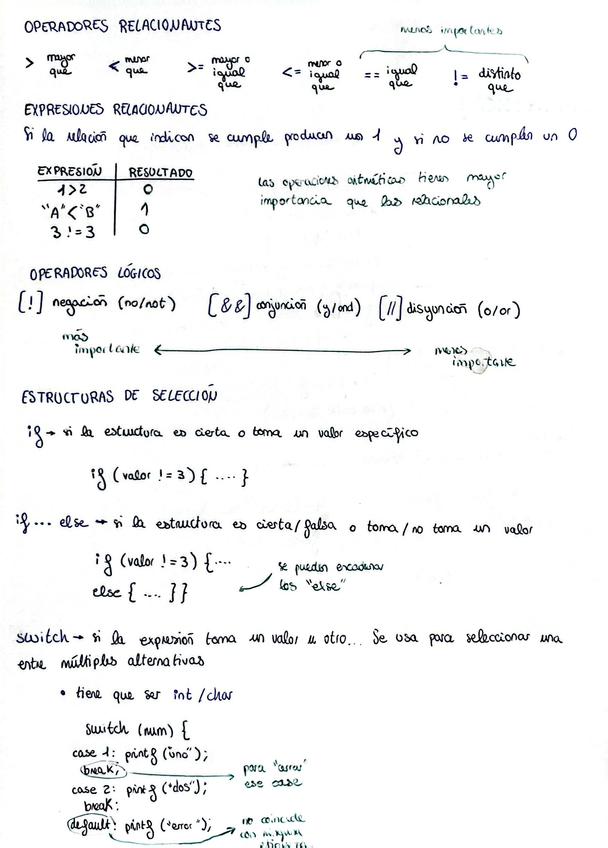 OPERADORES RELACIONANTES
menos importantes
> mayor que < menor que >= mayor o igual que <= menor o igual que == igual que != distinto que
EXPRESIONES RELACIONANTES
Si la relación que indican se cumple producen un 1 y si no se cumplen un 0
EXPRESIÓN RESULTADO
1>2 0
"A"<"B" 1
3 != 3 0
las operaciones aritméticas tienen mayor
importancia que las relacionales
OPERADORES LÓGICOS
[!] negación (no/not) [&&] conjunción (y/and) [//] disyunción (o/or)
más importante
menos importante
ESTRUCTURAS DE SELECCIÓN
if → si la estructura es cierta o toma un valor específico
if (valor != 3) { .... }
if ... else → si la estructura es cierta/falsa o toma/no toma un valor
if (valor != 3) {....
else { .... }}
se pueden encadenar
los "else"
switch → si la expresión toma un valor u otro... Se usa para seleccionar una
entre múltiples alternativas
• tiene que ser int / char
switch (num) {
case 1: printf ("uno");
break;
para "cerrar"
ese case
case 2: printf ("dos");
break:
default: printf ("error");
no coincide
con ningun